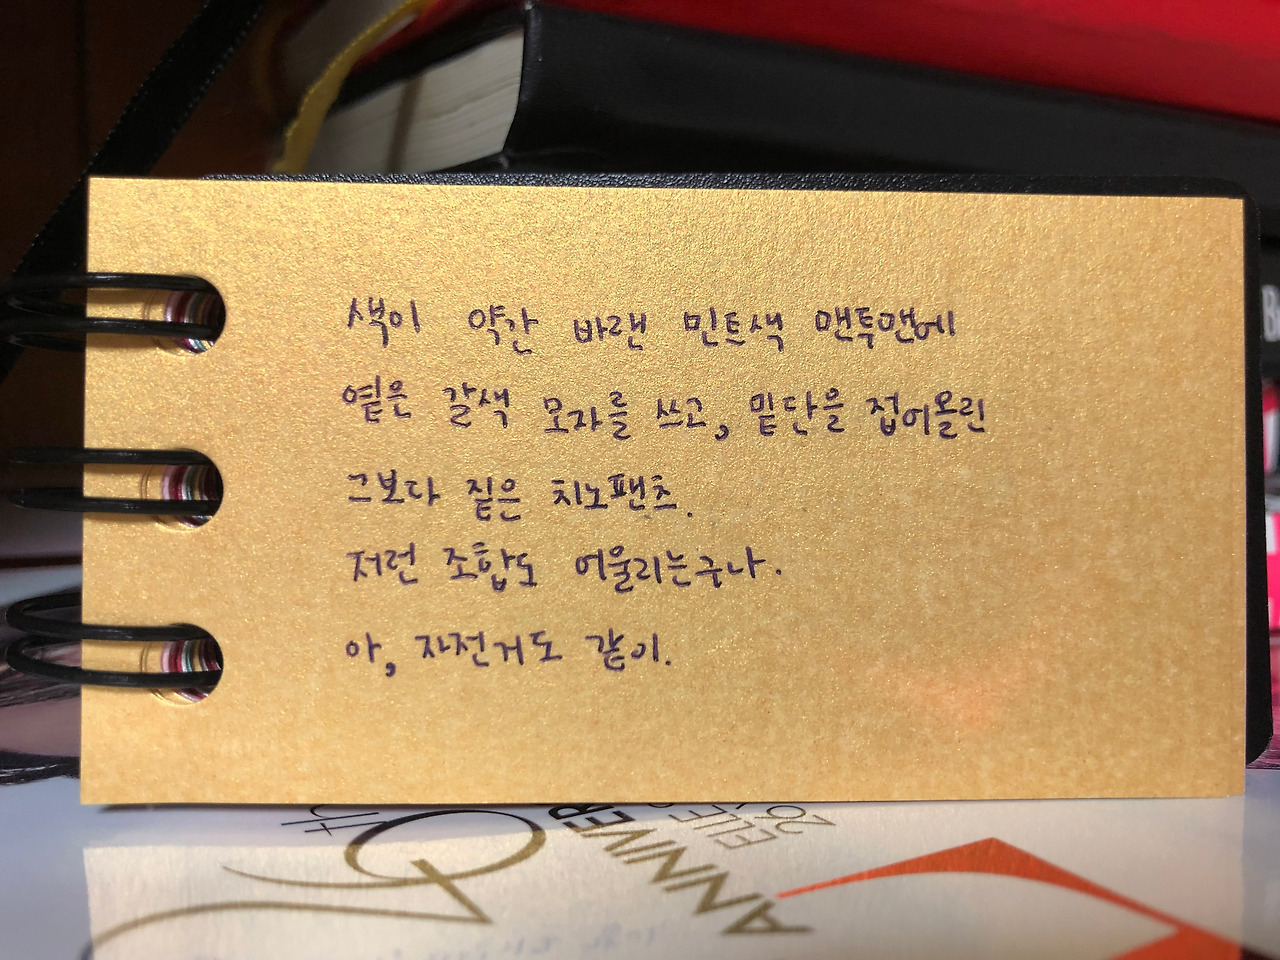 색이 약간 바랜 민트색 맨투맨에
옅은 갈색 모자를 쓰고, 밑단을 접어올린
그보다 짙은 치노팬츠.
저런 조합도 어울리는구나.
아, 자전거도 같이.
th
ANNIVER
ELE